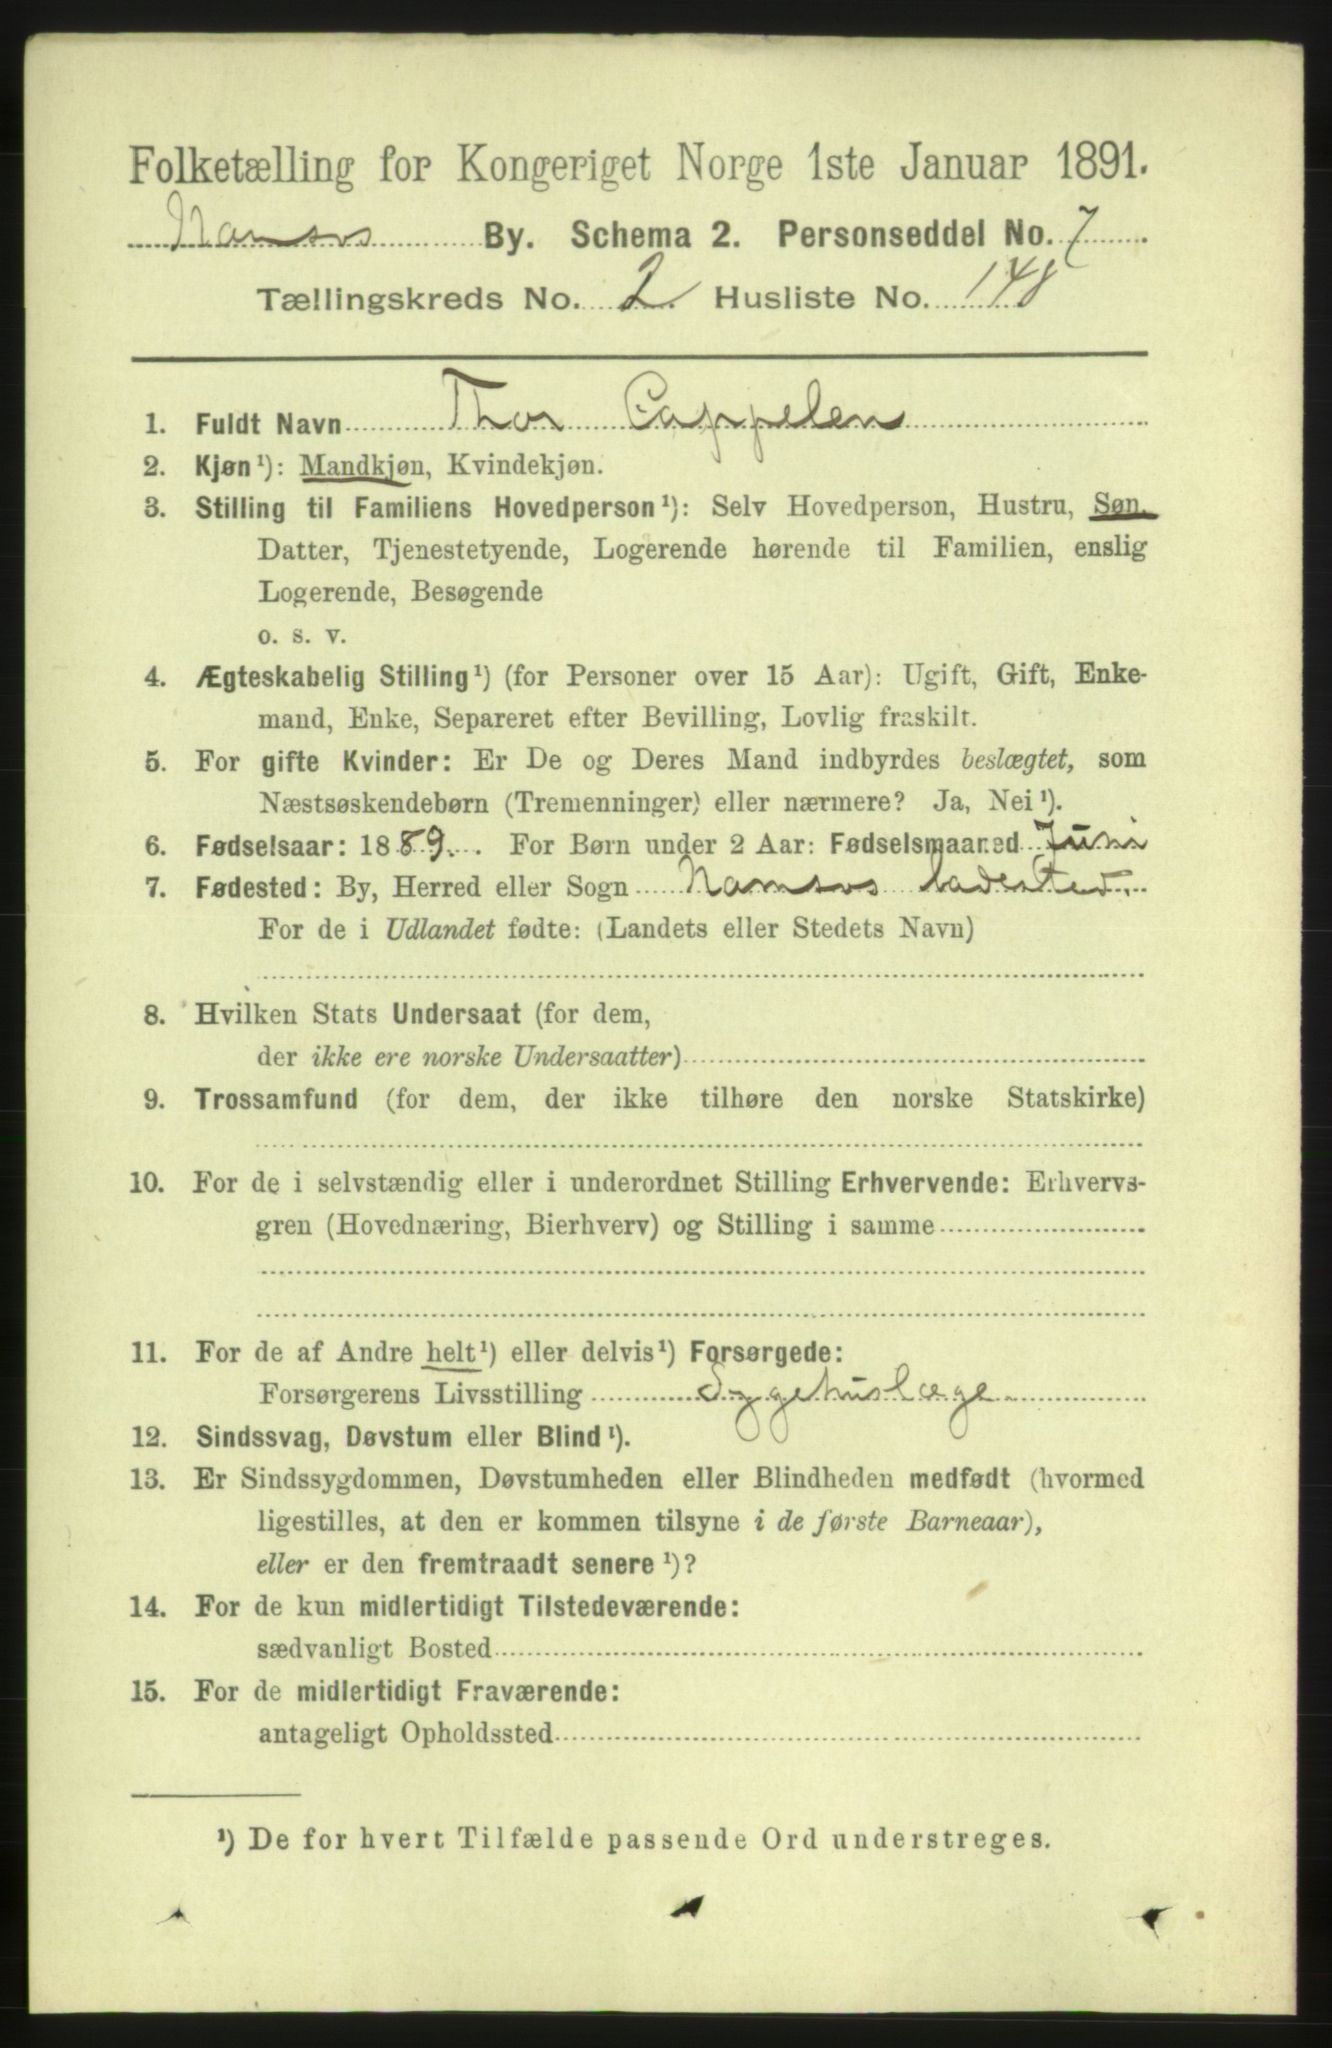 Folketælling for Kongeriget Norge 1ste Januar 1891.
Namsos By. Schema 2. Personseddel No. 7
Tællingskreds No. 2. Husliste No. 148
1. Fuldt Navn Thor Cappelen
2. Kjøn¹): Mandkjøn, Kvindekjøn.
3. Stilling til Familiens Hovedperson¹): Selv Hovedperson, Hustru, Søn,
Datter, Tjenestetyende, Logerende hørende til Familien, enslig
Logerende, Besøgende
o. s. v.
4. Ægteskabelig Stilling¹) (for Personer over 15 Aar): Ugift, Gift, Enke-
mand, Enke, Separeret efter Bevilling, Lovlig fraskilt.
5. For gifte Kvinder: Er De og Deres Mand indbyrdes beslægtet, som
Næstsøskendebørn (Tremenninger) eller nærmere? Ja, Nei¹).
6. Fødselsaar: 1889. For Børn under 2 Aar: Fødselsmaaned Juni
7. Fødested: By, Herred eller Sogn Namsos ladested.
For de i Udlandet fødte: (Landets eller Stedets Navn)
8. Hvilken Stats Undersaat (for dem,
der ikke ere norske Undersaatter)
9. Trossamfund (for dem, der ikke tilhøre den norske Statskirke)
10. For de i selvstændig eller i underordnet Stilling Erhvervende: Erhvervs-
gren (Hovednæring, Bierhverv) og Stilling i samme
11. For de af Andre helt¹) eller delvis¹) Forsørgede:
Forsørgerens Livsstilling Sygehuslæge
12. Sindssvag, Døvstum eller Blind¹).
13. Er Sindssygdommen, Døvstumheden eller Blindheden medfødt (hvormed
ligestilles, at den er kommen tilsyne i de første Barneaar),
eller er den fremtraadt senere¹)?
14. For de kun midlertidigt Tilstedeværende:
sædvanligt Bosted
15. For de midlertidigt Fraværende:
antageligt Opholdssted
¹) De for hvert Tilfælde passende Ord understreges.